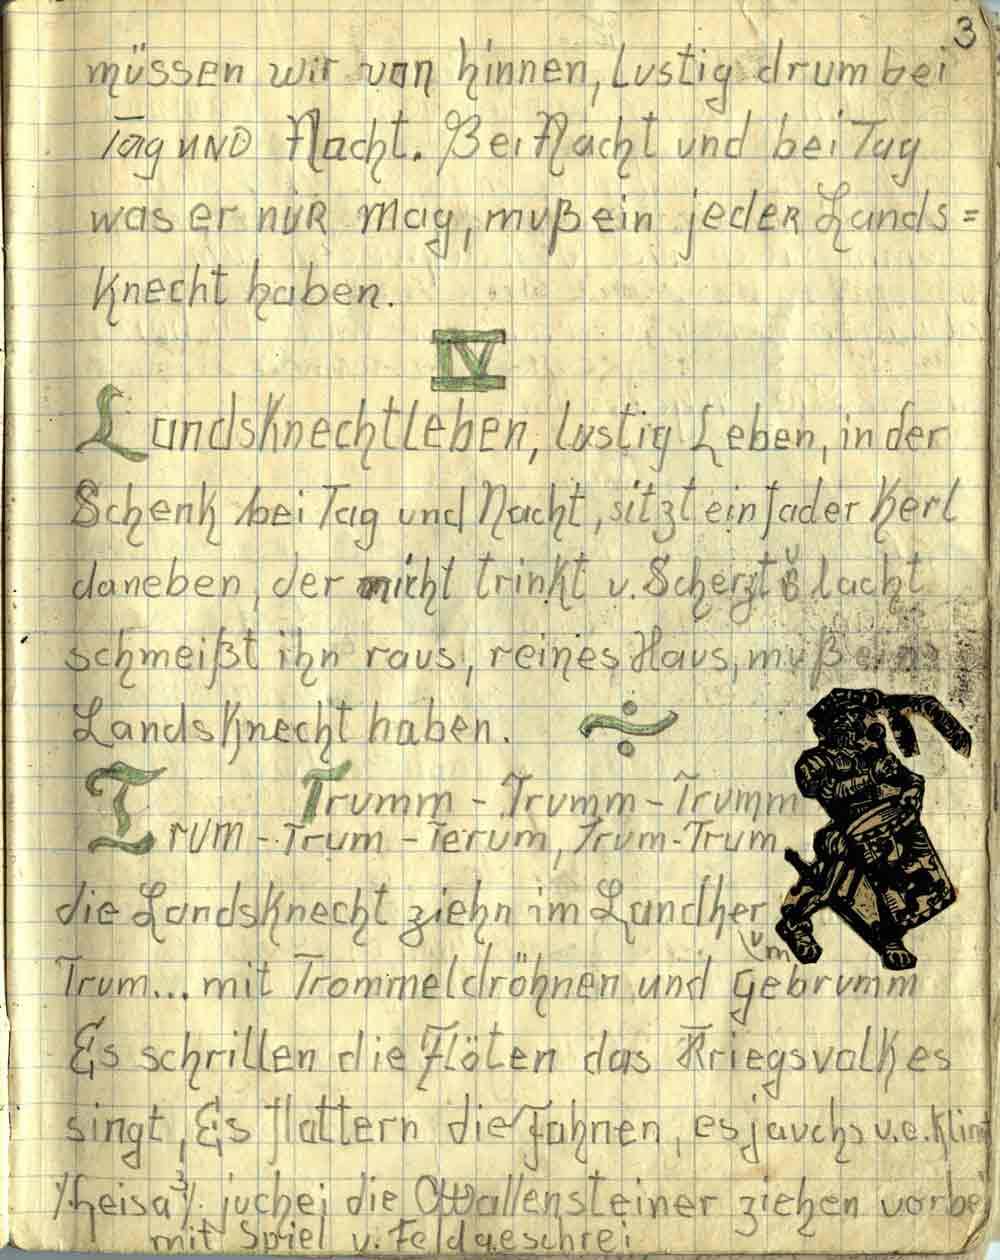 3
müssen wir von hinnen, lustig drum bei
Tag und Nacht. Bei Nacht und bei Tag
was er nur mag, muß ein jeder Lands=
knecht haben.
IV
Landsknechtleben, lustig Leben, in der
Schenk bei Tag und Nacht, sitzt ein fader Kerl
daneben, der nicht trinkt u. Scherzt u lacht
schmeißt ihn raus, reines Haus, muß ein
Landsknecht haben.
Trumm - Trumm - Trumm
Trum - Trum - Terum, Trum-Trum
die Landsknecht ziehn im Land her
um
Trum... mit Trommeldröhnen und Gebrumm
Es schrillen die Flöten das Kriegsvolk es
singt, Es flattern die Fahnen, es jauchs u. e. klingt
/:heisa:/ juchei die Wallensteiner ziehen vorbei
mit Spiel u. Feldgeschrei